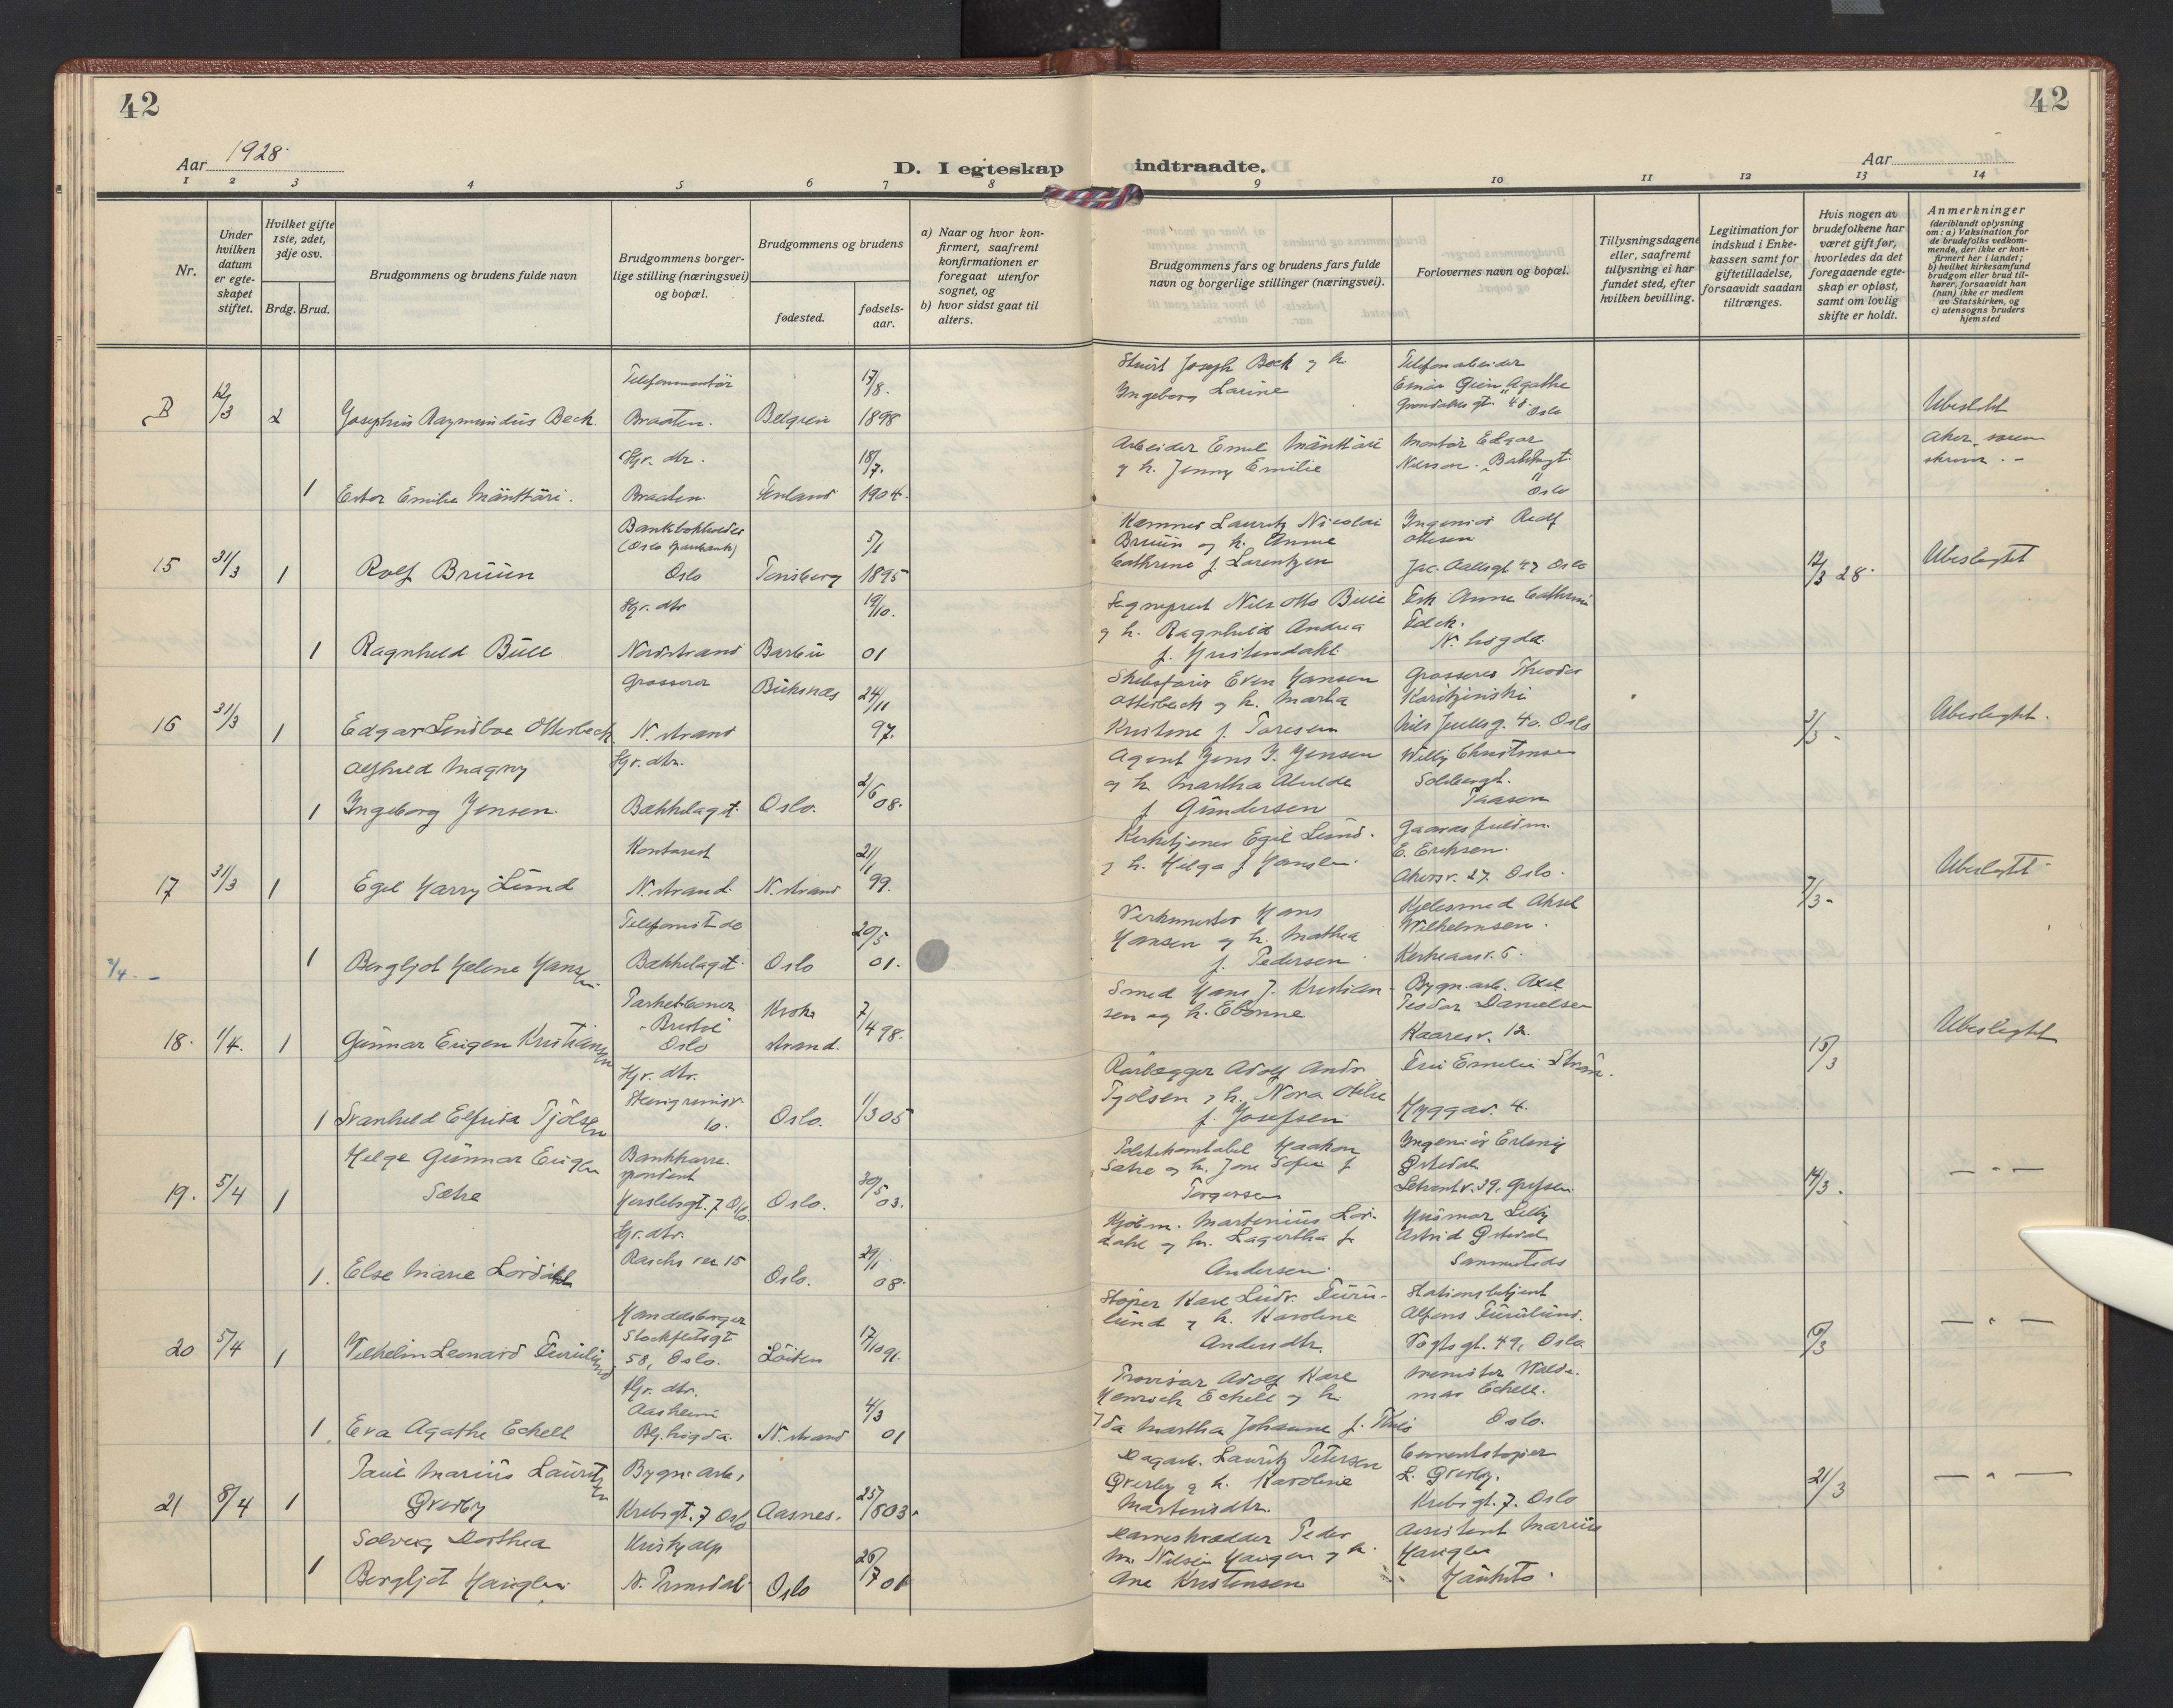 42
42
Aar 1928
D. I egteskap
indtraadte.
Aar
1 2 3 4 5 6 7 8
9 10 11 12 13 14
Nr.
Under hvilken datum er egteskapet stiftet.
Hvilket gifte 1ste, 2det, 3dje osv.
Brdg. Brud.
Brudgommens og brudens fulde navn
Brudgommens borgerlige stilling (næringsvei) og bopæl.
Brudgommens og brudens
fødested.
fødselsaar.
a) Naar og hvor konfirmert, saafremt konfirmationen er foregaat utenfor sognet, og
b) hvor sidst gaat til alters.
Brudgommens fars og brudens fars fulde navn og borgerlige stillinger (næringsvei).
Forlovernes navn og bopæl.
Tillysningsdagene eller, saafremt tillysning ei har fundet sted, efter hvilken bevilling.
Legitimation for indskud i Enkekassen samt for giftetilladelse, forsaavidt saadan tiltrænges.
Hvis nogen av brudefolkene har været gift før, hvorledes da det foregaaende egteskap er opløst, samt om lovlig skifte er holdt.
Anmerkninger
(deriblandt oplysning om: a) Vaksination for de brudefolks vedkommende, der ikke er konfirmert her i landet; b) hvilket kirkesamfund brudgom eller brud tilhører, forsaavidt han (hun) ikke er medlem av Statskirken, og c) utensogns bruders hjemsted
12/3 2 Josephus Raymundus Beck. Telefonmontör Braaten. Belgien 17/8. 1898
Joseph Beck og h. Ingeborg Larine
Telefonarbeider Agathe Oslo
Ubeslektet
1 Ester Emilie Mänttäri. Hgr. dtr. Braaten. Finland 18/7. 1904.
Arbeider Emil Mänttäri og h. Jenny Emilie
Montör Edgar Oslo
Aker sorenskriver
15 31/3 1 Rolf Bruun Bankbokholder (Oslo Sparebank) Oslo Tønsberg 5/1 1895
Kæmner Lauritz Nicolai Bruun og h. Anne Cathrine f. Lorentzen
Ingeniør Rolf Ottesen Jac. Aallsgt. 47 Oslo
12/3 28. Ubeslegtet
1 Ragnhild Bull Hgr. dtr Nordstrand Barbu 19/10. 01
Sogneprest Nils Otto Bull og h. Ragnhild Andrea
Frk Anne Cathrine
16 31/3 1 Edgar Lindboe Otterbech Grosserer N. strand Buksnæs 24/11 97.
Skibsfører Even Hansen Otterbech og h. Martha Kristine f. Toresen
Grosserer Theodor Nils Juelsg. 40. Oslo
3/3 - Ubeslegtet.
1 Alfhild Magny Ingeborg Jensen. Hgr. dtr. Bækkelaget. Oslo. 2/6 08.
Agent Jens J. Jensen og h. Martha Alvilde f. Gundersen
Willy Christensen Solbergt. Taasen
17 31/3 1 Egil Harry Lund Kontorist N. strand. N. strand 21/1 99.
Kirketjener Egil Lund. og h. Helga f Hansen.
E. Eriksen. Akersv. 27. Oslo.
7/3 - Ubeslegtet
2/4. -
1 Bergljot Helene Hansen. Telefonistde Bækkelaget. Oslo 20/5 01.
Verkmester Hans Hansen og h. Mathea f. Pedersen
Kjelesmed Aksel Wilhelmsen. Kirkeaasv. 5.
18. 1/4. 1 Gunnar Eugen Kristiansen Oslo Kroke strand. 7/4 98.
Smed Hans J. Kristiansen og h.
Bygn. arb. Axel Teodor Danielsen Kaaresv. 12.
15/3 Ubeslegtet
1 Svanhild Elfrida Tjölsen Hgr. dtr. Steingrimsv. 10. Oslo. 1/3 05
Rørlægger Adolf Andr. Tjölsen og h. Nora Otilie f. Josefsen
Fru Emilie Hyggav. 4.
19. 5/4 1 Helge Gunnar Eugen Sætre Bankkorrespondent Herslebsgt. 7 Oslo Oslo. 30/5 03.
Politikonstabel Haakon Sætre og h. Jone Sofie f Torgersen
Ingeniør Erling Ørstedal Grefsen
14/3. - " -
1. Else Marie Lørdahl Hgr. dtr. Raschs vei 15 Oslo. 29/1 08.
Kjøbm. Martenius Lørdahl og h. Lagertha f. Andersen.
Husmor Lilly Astrid Ørstedal Sammesteds
20 5/4 1 Vilhelm Leonard Furulund Handelsborger Stockfletsgt 58, Oslo. Löiten 17/10 91.
Støper Karl Ludv. Furulund og h. Karoline Andersdtr.
Stationsbetjent Alfons Furulund. Vogtsgt. 49, Oslo.
6/3 - " -
1. Eva Agathe Eckell Hgr. dtr. Aasheim Blj. høgda. N. strand 4/3 01
Provisor Adolf Karl Henrich Eckell og h. Ida Martha Johanne f. Thiis
Waldemar Eckell. Oslo.
21 8/4 1 Paul Marius Lauritzen Øverby Bygn. arb. Krebsgt. 7 Oslo Aasnes. 25/1 803.
Dagarb. Lauritz Petersen Øverby og h. Karoline Martinsdtr.
Cementstøper L. Øverby. Krebsgt. 7. Oslo
21/3 - " -
1 Solveig Dorthea Bergljot Haugen. N. Oslo 26/7 01
Dameskrædder Peder M. Nilsen Haugen og h. Ane Kristensen
Assistent Marius Haugen Hauketo.